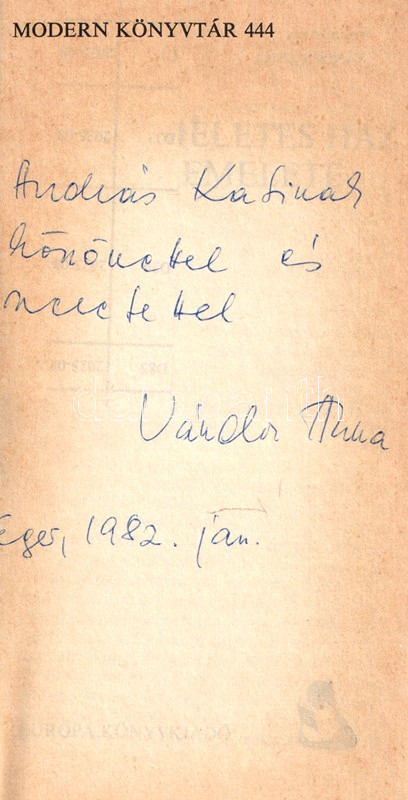 MODERN KÖNYVTÁR 444
András Katinak
köszönettel és
szeretettel
Vándor Anna
Eger, 1982. jan.
EURÓPA KÖNYVKIADÓ